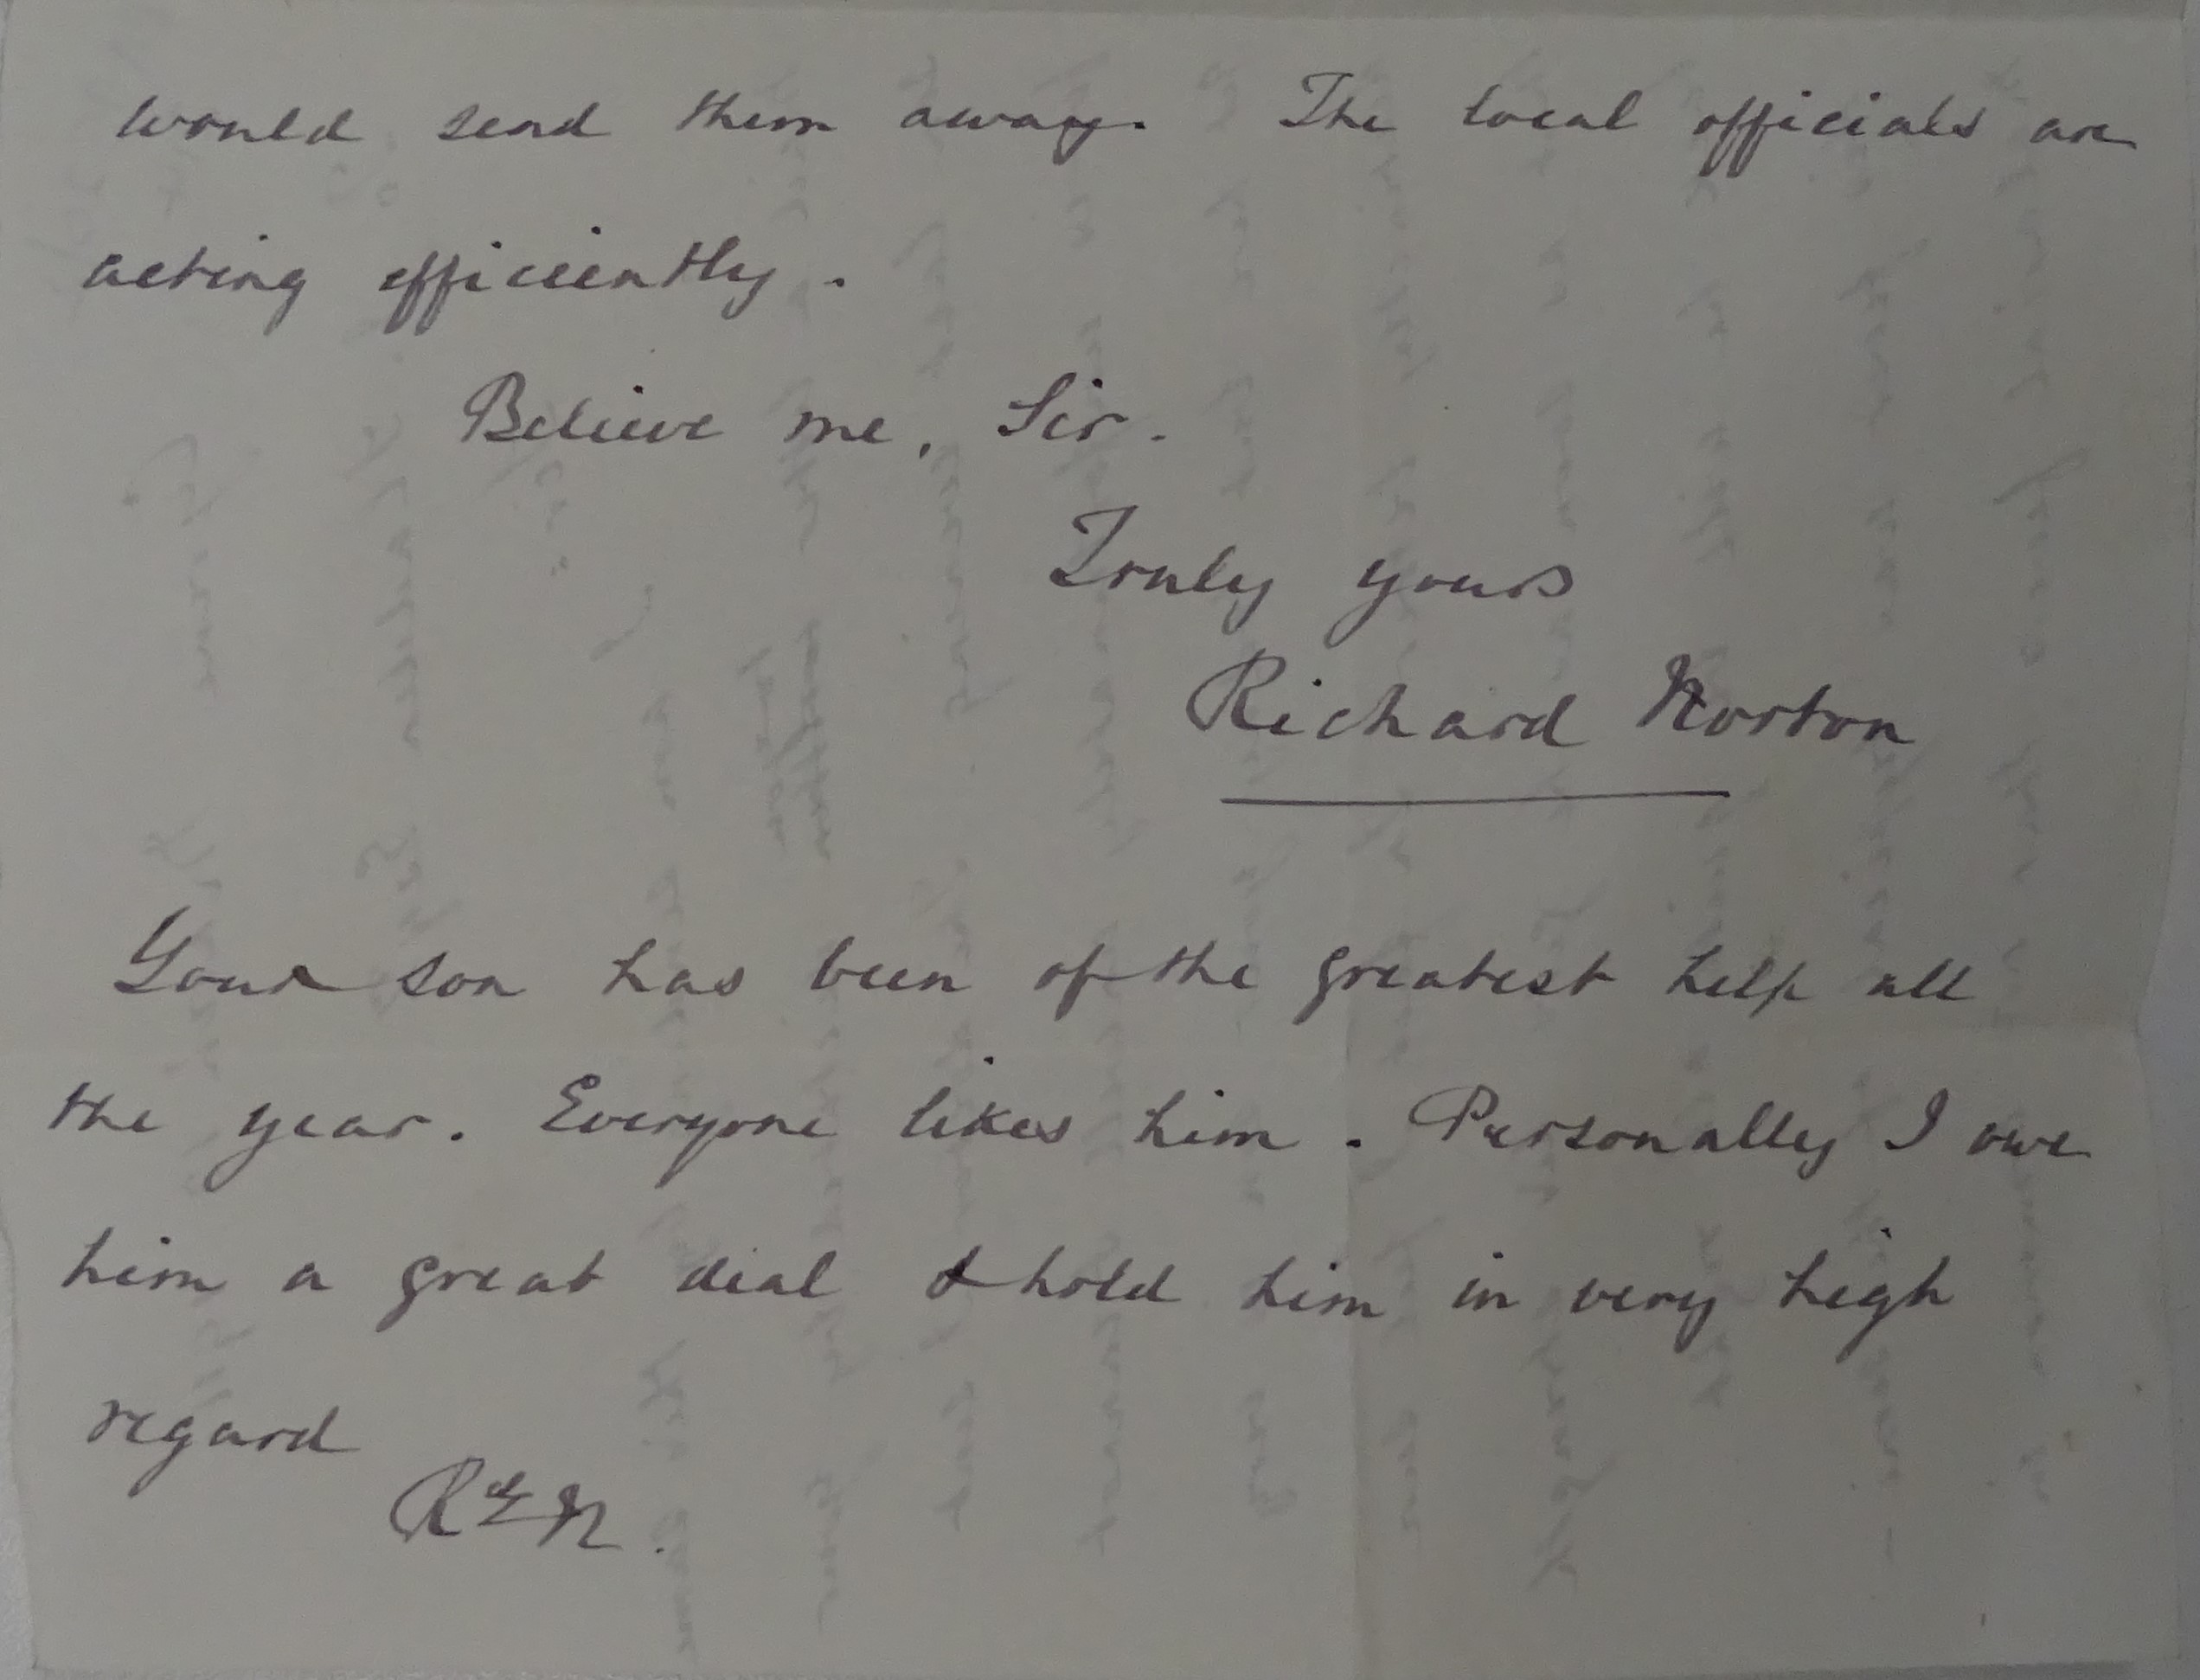 would send them away. The local officials are
acting efficiently.
Believe me, Sir.
Truly yours
Richard Norton
Your son has been of the greatest help all
the year. Everyone likes him. Personally I owe
him a great deal & hold him in very high
regard